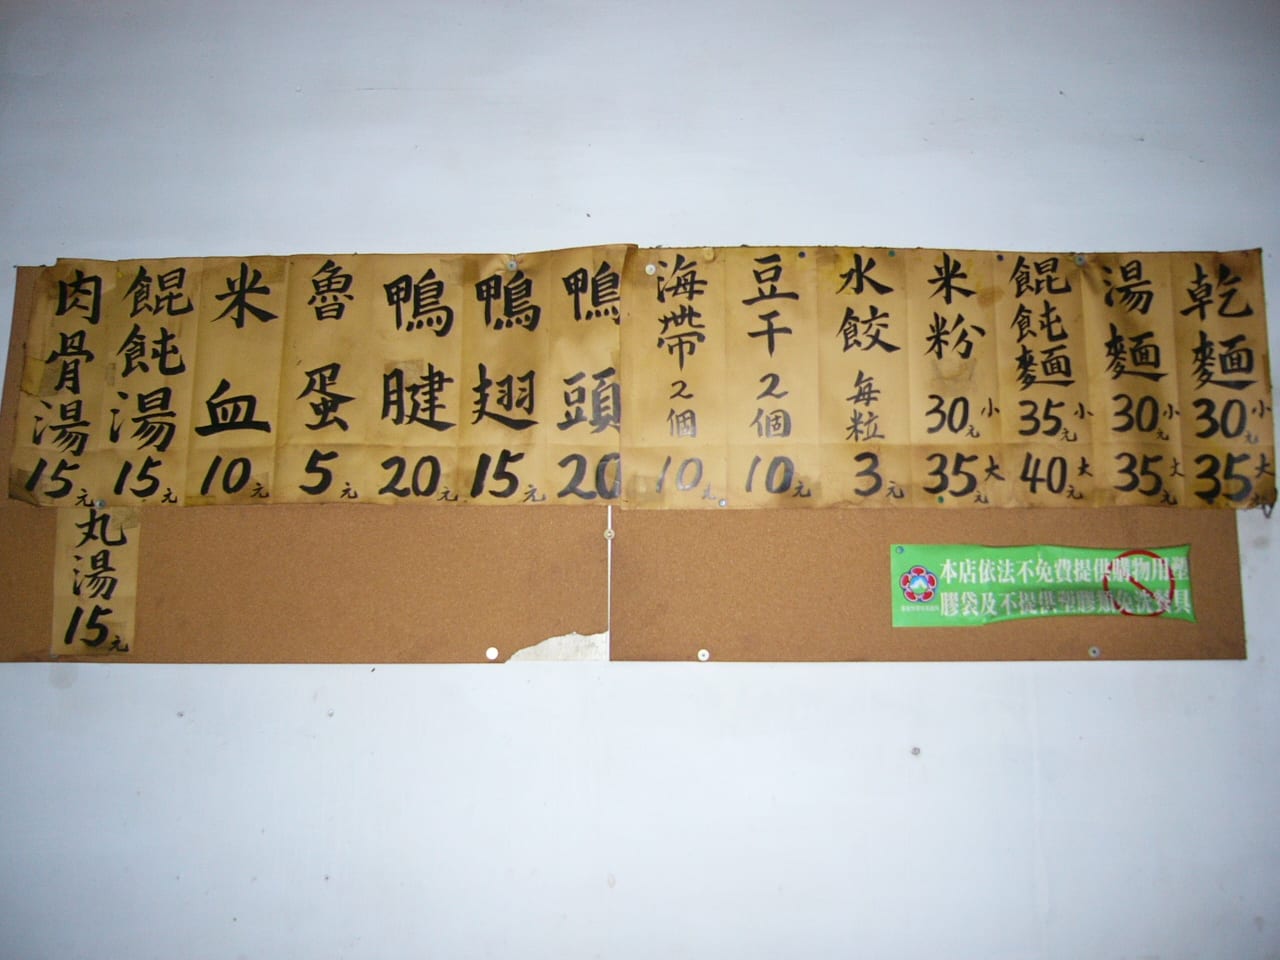 乾麵 小30元 大35元
湯麵 小30元 大35元
餛飩麵 小35元 大40元
米粉 小30元 大35元
水餃 每粒 3元
豆干 2個 10元
海帶 2個 10元
鴨頭 20
鴨翅 15元
鴨腱 20元
魯蛋 5元
米血 10元
餛飩湯 15元
肉骨湯 15元
丸湯 15元
本店依法不免費提供購物用塑
膠袋及不提供塑膠類免洗餐具